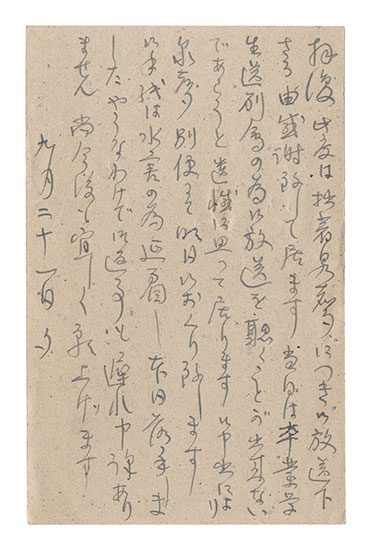 拝復 此度は拙著泉鏡花につき御放送下
さる由感謝致して居ます 当日は卒業学
生送別会の為御放送を聴くことが出来ない
であらうと遺憾に思つて居ります 御申出により
別便にて明日御おくり致します
御手紙は水害の為延着し本日落手しま
したやうなわけで御返事も遅れ申訳あり
ません 尚今後も宜しく願上げます
九月二十一日夕